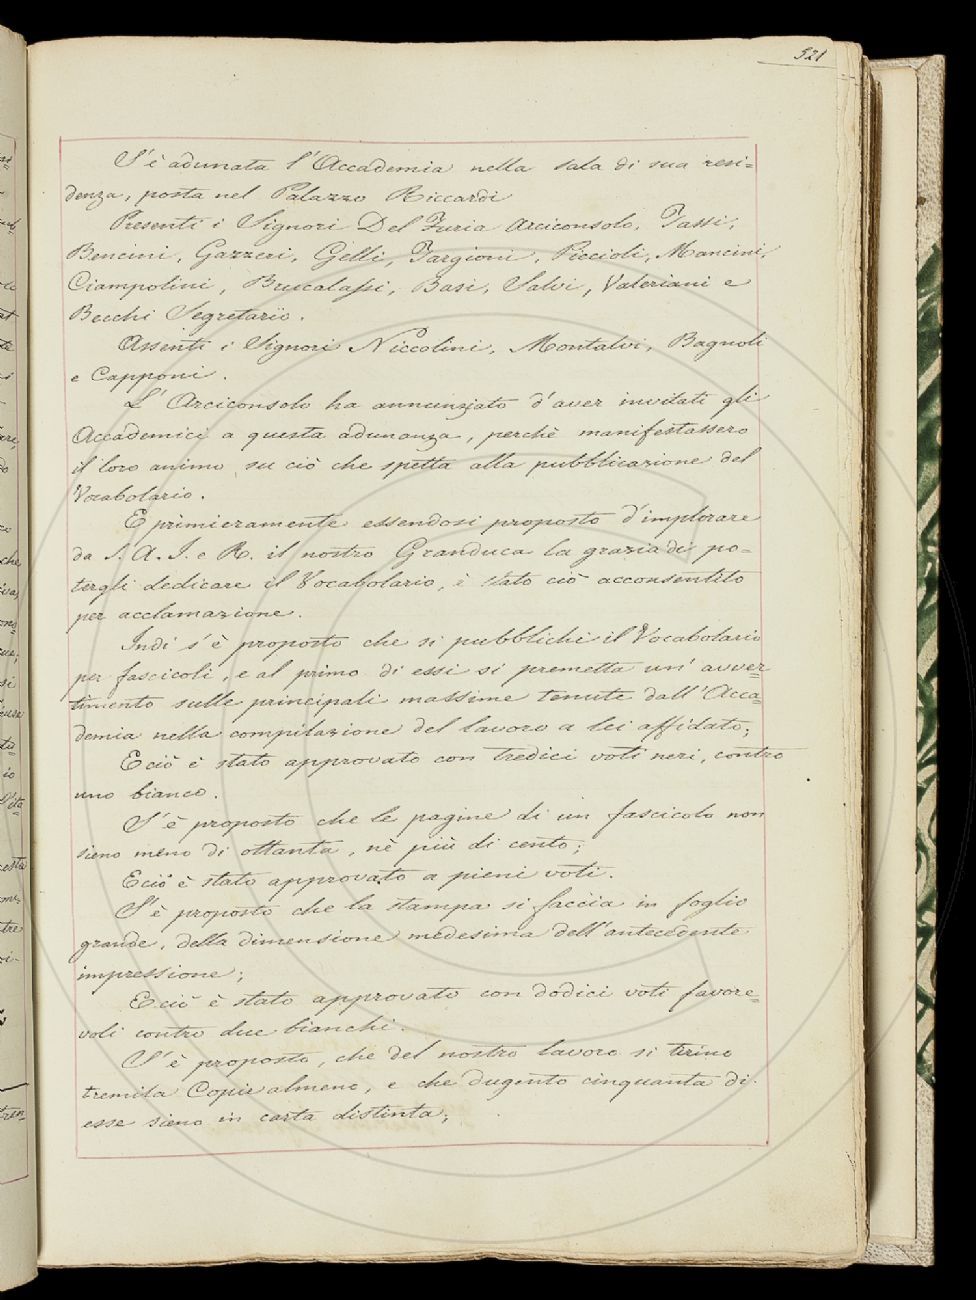 521
S'è adunata l'Accademia nella sala di sua resi=
denza, posta nel Palazzo Riccardi
Presenti i Signori Del Furia Arciconsolo, Tassi,
Bencini, Gazzeri, Gelli, Targioni, Piccioli, Mancini,
Ciampolini, Brucalassi, Basi, Salvi, Valeriani e
Becchi Segretario.
Assenti i Signori Niccolini, Montalvi, Bagnoli
e Capponi.
L'Arciconsolo ha annunziato d'aver invitati gli
Accademici a questa adunanza, perchè manifestassero
il loro animo su ciò che spetta alla pubblicazione del
Vocabolario.
E primieramente essendosi proposto d'implorare
da S. A. I. e R. il nostro Granduca la grazia di po=
tergli dedicare il Vocabolario, è stato ciò acconsentito
per acclamazione.
Indi s'è proposto che si pubblichi il Vocabolario
per fascicoli, e al primo di essi si premetta un' avver=
timento sulle principali massime tenute dall'Acca=
demia nella compilazione del lavoro a lei affidato;
E ciò è stato approvato con tredici voti neri, contro
uno bianco.
S'è proposto che le pagine di un fascicolo non
sieno meno di ottanta, nè più di cento;
E ciò è stato approvato a pieni voti.
S'è proposto che la stampa si faccia in foglio
grande, della dimensione medesima dell'antecedente
impressione;
E ciò è stato approvato con dodici voti favore=
voli contro due bianchi.
S'è proposto, che del nostro lavoro si tirino
tremila Copie almeno, e che dugento cinquanta di
esse sieno in carta distinta;